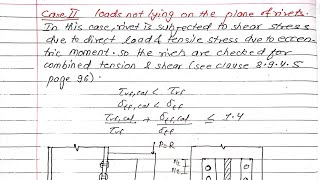 Case II loads not lying on the plane of rivets.
In this case, rivet is subjected to shear stress
due to direct load & tensile stress due to eccen-
tric moment. so the rivets are checked for
combined tension & shear (see clause 8.9.4.5
page 96).
τvf,cal < τvf
δtf,cal < δtf
τvf,cal / τvf + δtf,cal / δtf ≤ 1.4
P=R